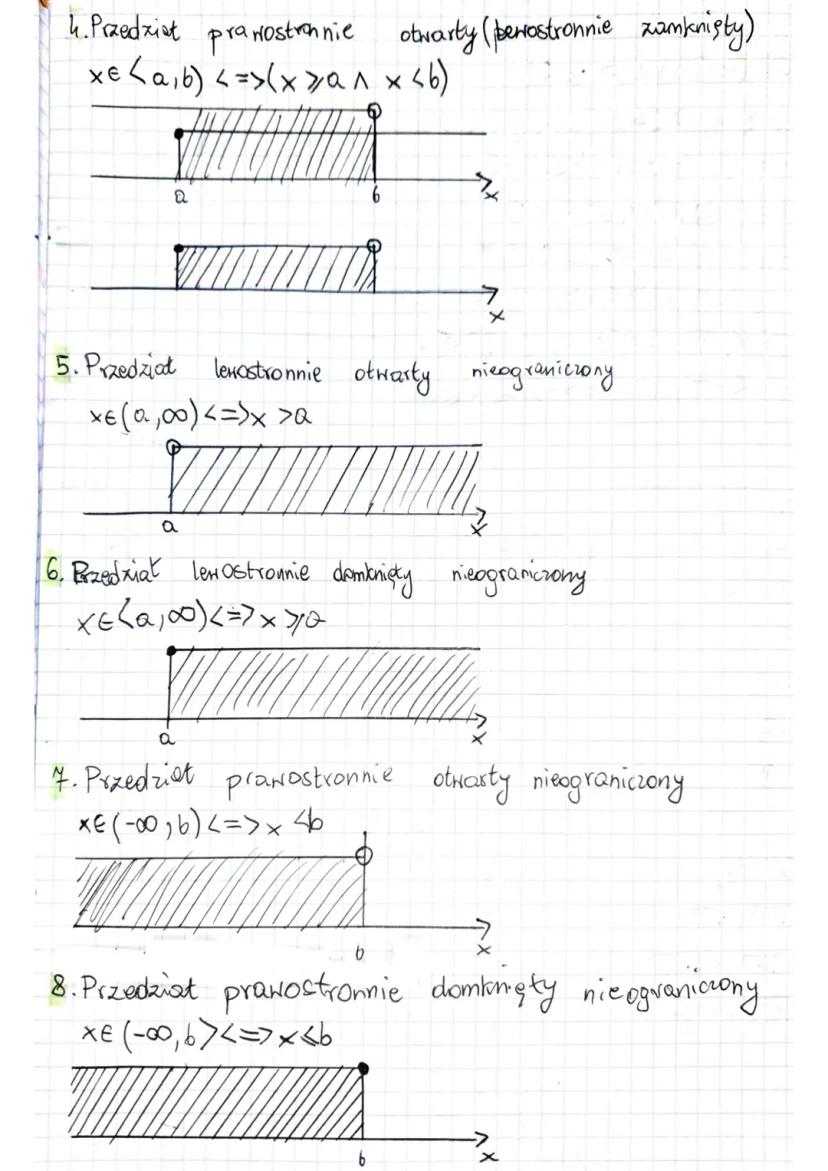 4. Przedział prawostronnie otwarty (lewostronnie zamknięty)
x∈<a,b) <=>(x⩾a ∧ x<b)
a b x
x
5. Przedział lewostronnie otwarty nieograniczony
x∈(a,∞)<=>x>a
a x
6. Przedział lewostronnie domknięty nieograniczony
x∈<a,∞)<=>x⩾a
a x
7. Przedział prawostronnie otwarty nieograniczony
x∈(-∞,b)<=>x<b
b x
8. Przedział prawostronnie domknięty nieograniczony
x∈(-∞,b><=>x⩽b
b x